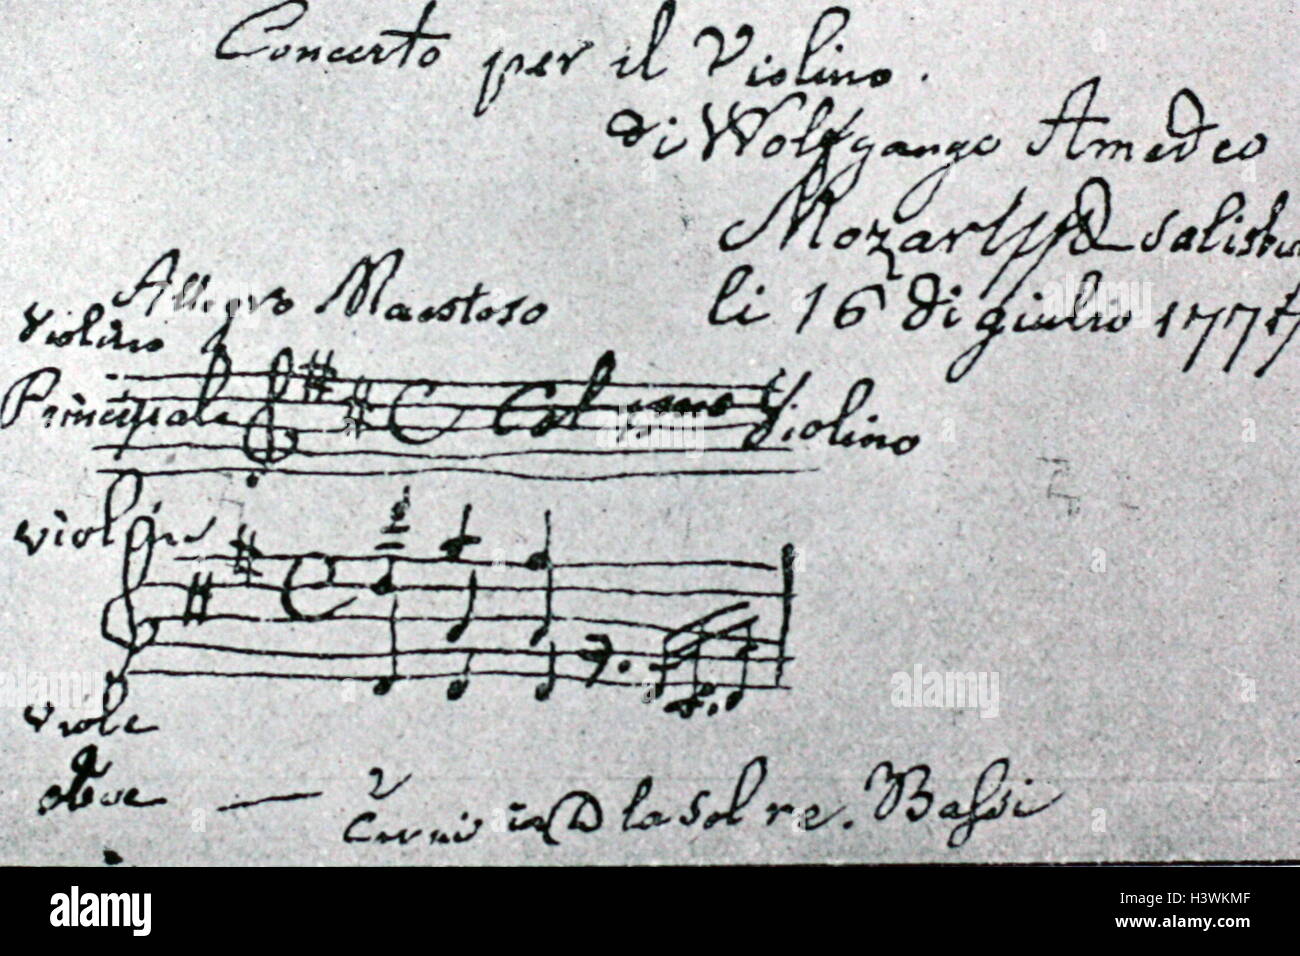 Concerto per il Violino.
di Wolfgango Amedeo
Mozart
li 16 di giulio 1777
Allegro Maestoso
Violino
Principale Col primo Violino
viole
oboe 2 Corni in D la sol re. Bassi
alamy
Image ID: H3WKMF
www.alamy.com